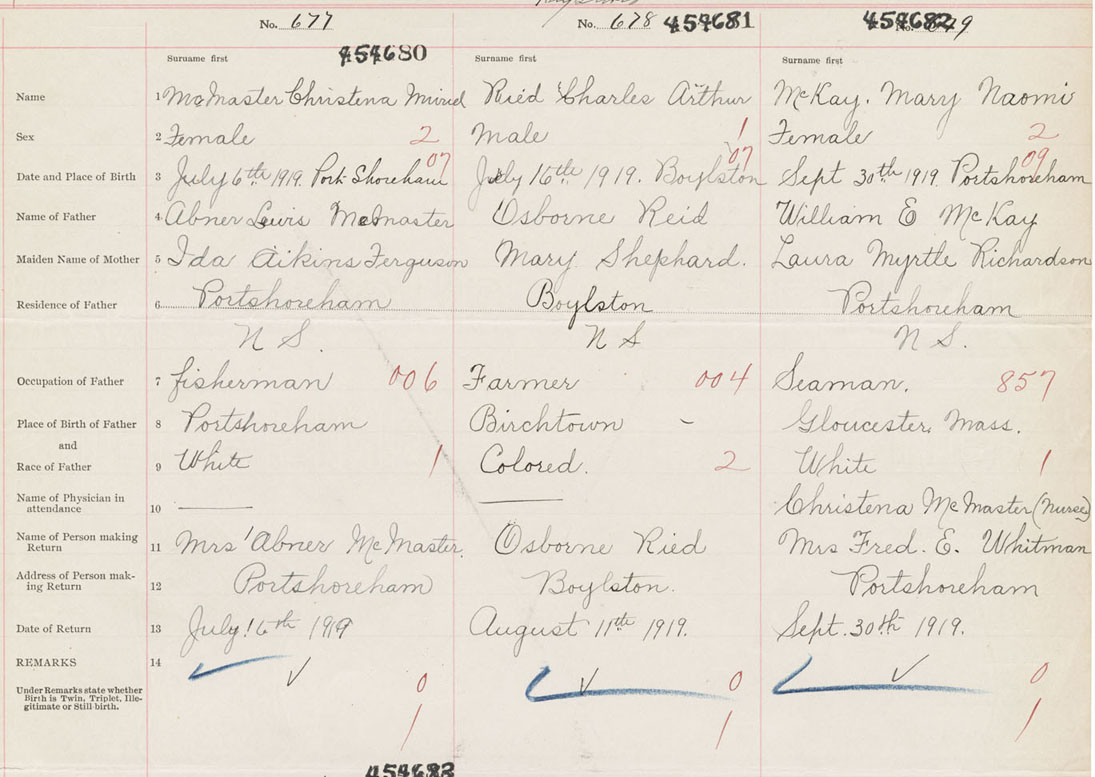 No. 677 No. 678 454681 454682
454680
Surname first Surname first Surname first
Name 1 McMaster Christena Ried Charles Arthur McKay. Mary Naomi
Sex 2 Female 2 Male 1 Female 2
07 07 09
Date and Place of Birth 3 July 6th 1919. Port Shoreham July 16th 1919. Boylston Sept 30th 1919. Portshoreham
Name of Father 4 Abner Lewis McMaster Osborne Reid William E McKay
Maiden Name of Mother 5 Ida Aikins Ferguson Mary Shephard. Laura Myrtle Richardson
Residence of Father 6 Portshoreham Boylston Portshoreham
N S. N S N S.
Occupation of Father 7 fisherman 006 Farmer 004 Seaman. 857
Place of Birth of Father 8 Portshoreham Birchtown - Gloucester, Mass.
and
Race of Father 9 White 1 Colored. 2 White 1
Name of Physician in
attendance 10 Christena McMaster (Nurse)
Name of Person making
Return 11 Mrs Abner McMaster. Osborne Ried Mrs Fred. E. Whitman
Address of Person mak-
ing Return 12 Portshoreham Boylston. Portshoreham
Date of Return 13 July 16th 1919 August 11th 1919. Sept. 30th 1919.
REMARKS 14
0 0 0
Under Remarks state whether
Birth is Twin, Triplet, Ille-
gitimate or Still-birth.
1 1 1
454683